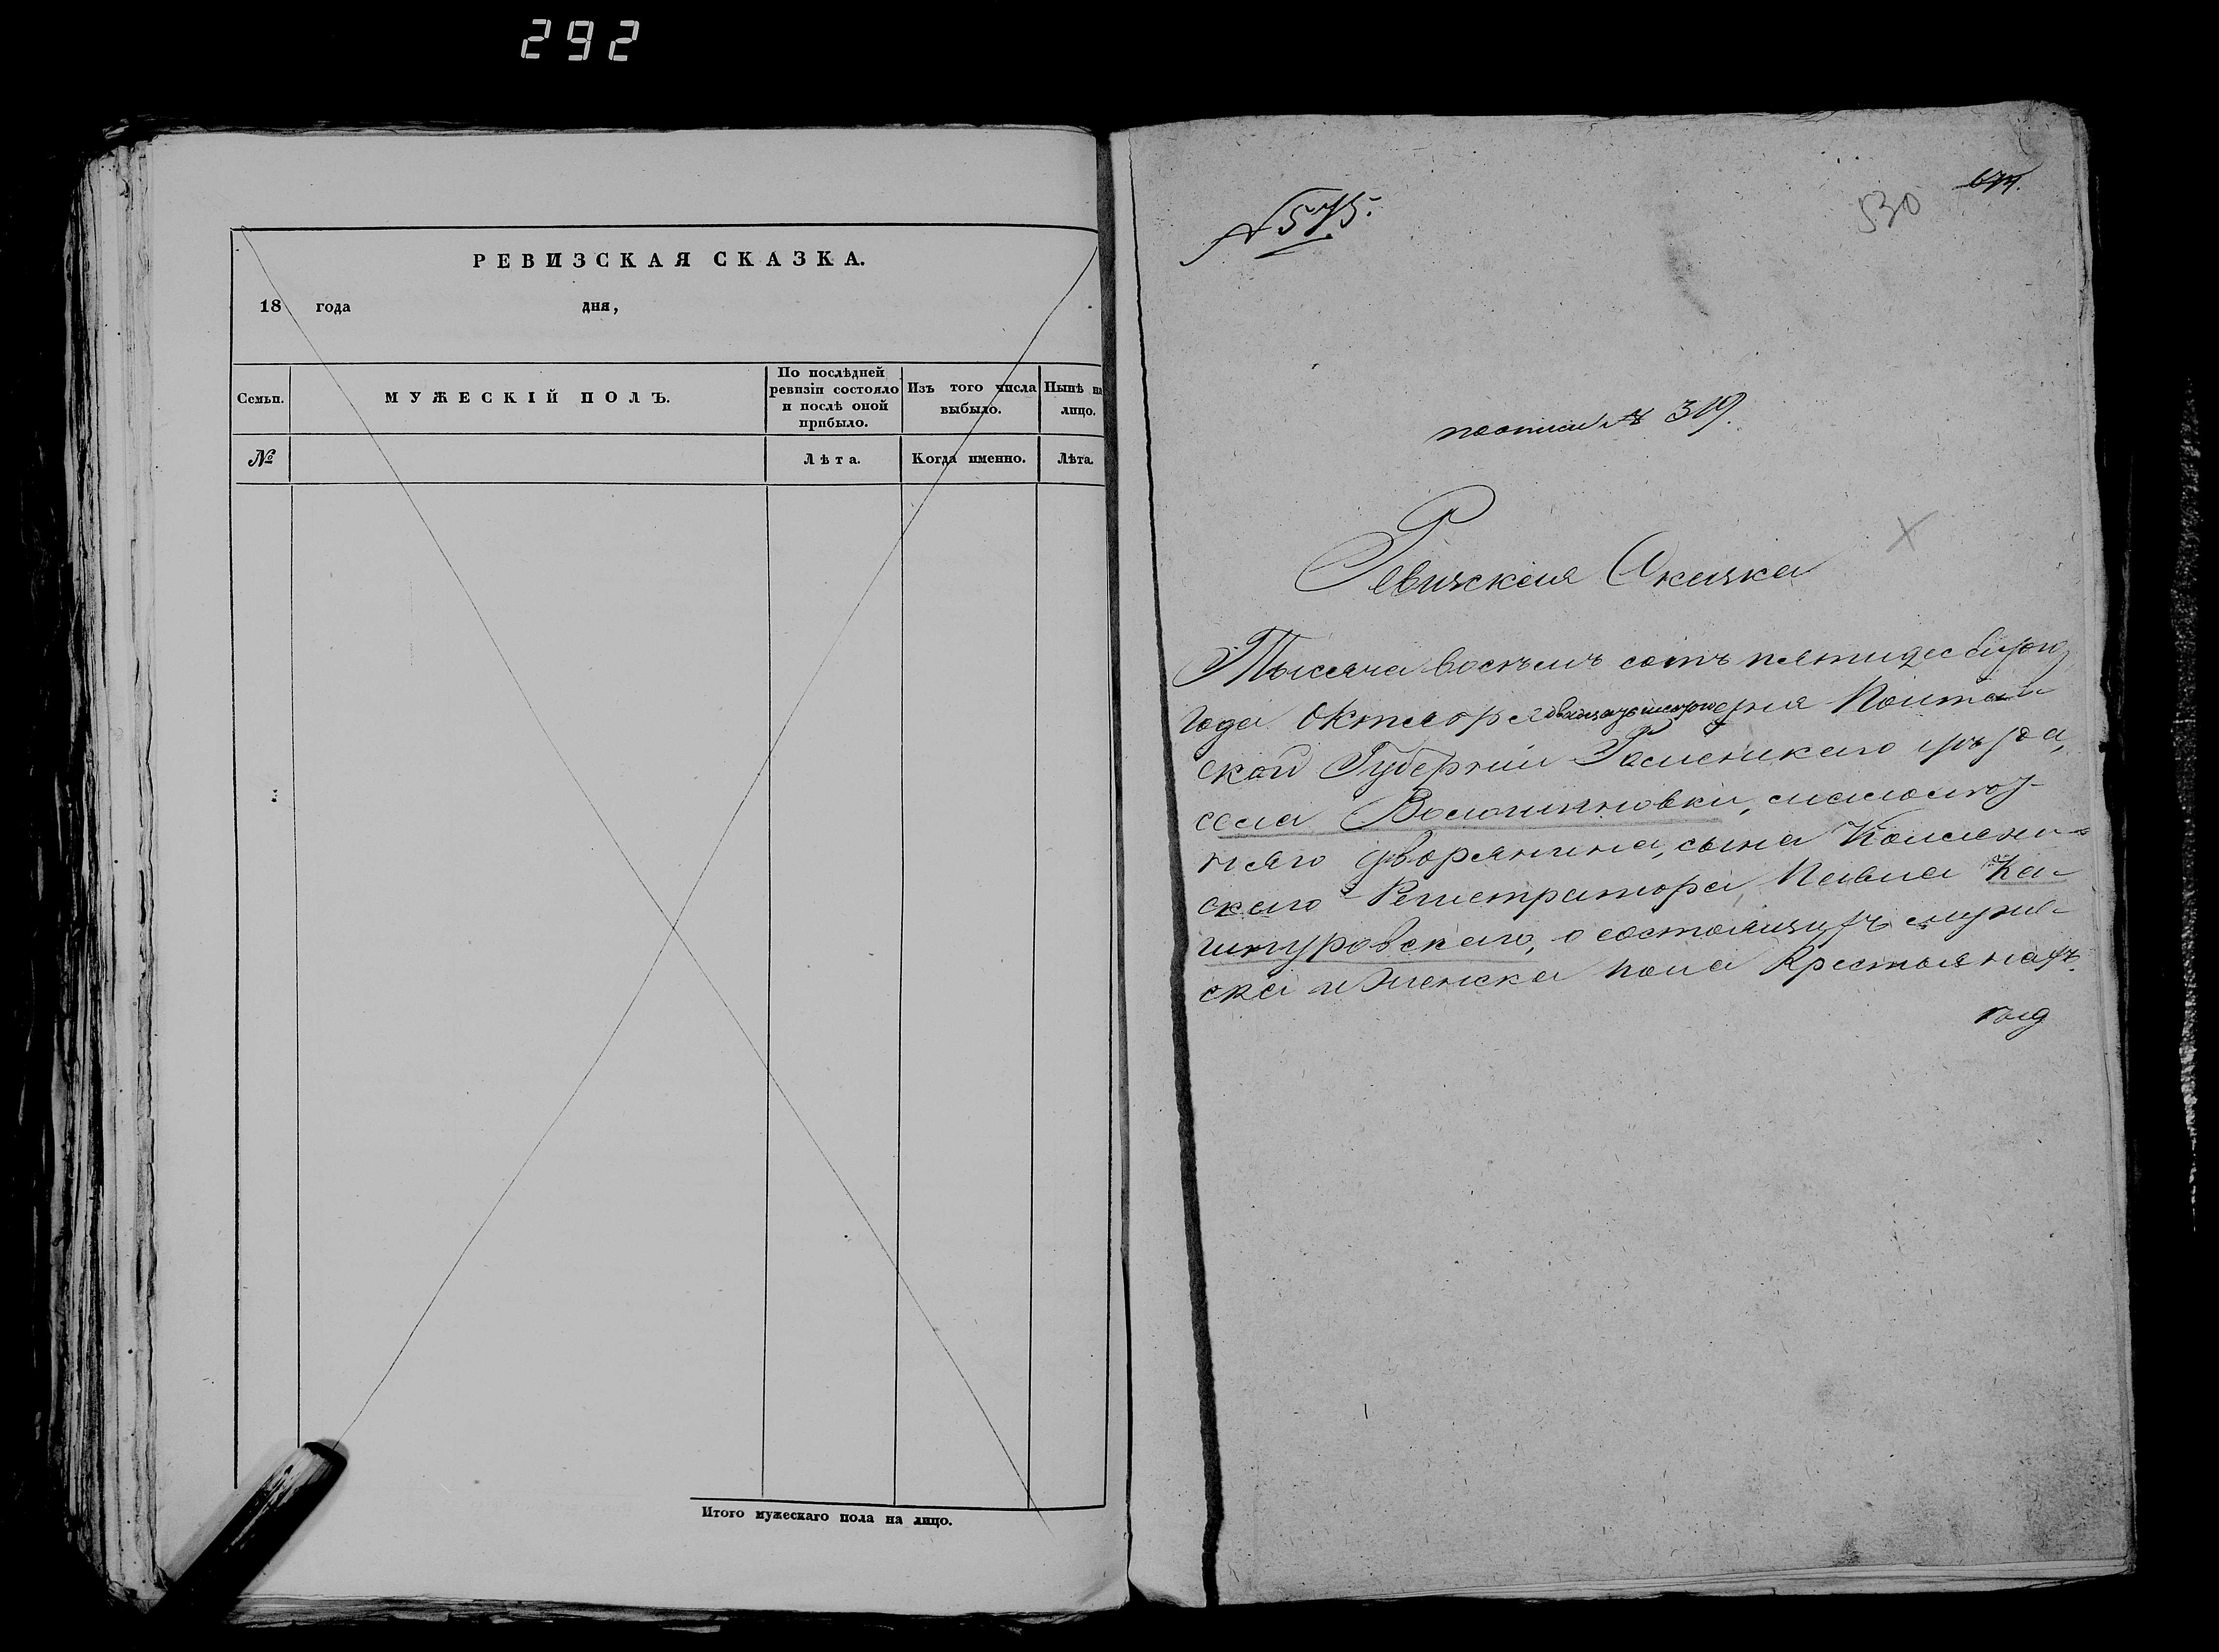 292
РЕВИЗСКАЯ СКАЗКА.
18 года дня,
Семьи.
МУЖЕСКІЙ ПОЛЪ.
По послѣдней ревизіи состояло и послѣ оной прибыло.
Изъ того числа выбыло.
Нынѣ на лицо.
№
Лѣта.
Когда именно.
Лѣта.
Итого мужескаго пола на лицо.
№ 575.
530
по описи № 319.
Ревизская Сказка
Тысяча восемь сотъ пятидес
года Октября дня Полтав
ской Губерніи Роменскаго уѣзда,
села Волошиновки,
дворянина, сына Коллежи-
скаго Регистратора, Павла Ка-
шуровскаго, о состоящихъ муже-
ска и женска пола Крестьянахъ.